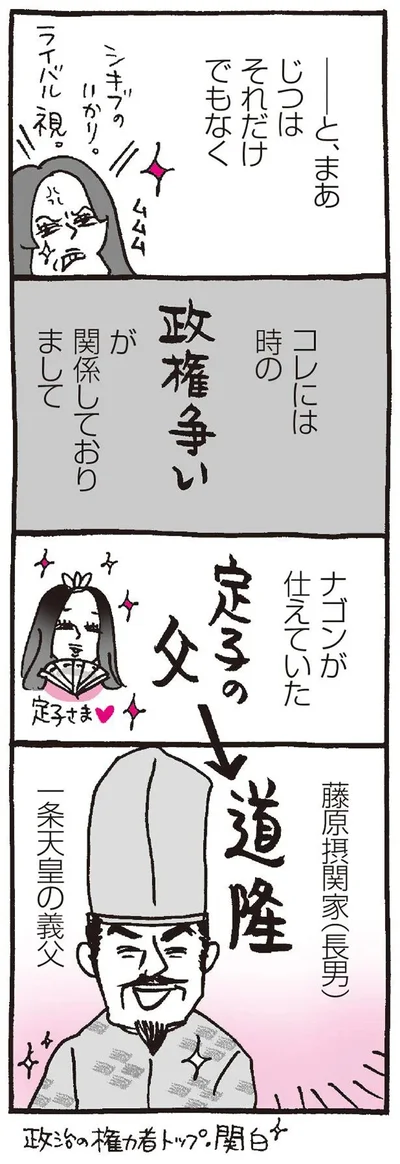 ――と、まあ
じつは
それだけ
でもなく
シキブの
いかり。
ライバル視。
ムムム
コレには
時の
政権争い
が
関係しており
まして
ナゴンが
仕えていた
定子の
父
定子さま♥
道隆
藤原摂関家(長男)
一条天皇の義父
政治の権力者トップ。関白